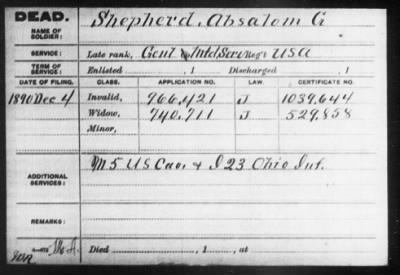 DEAD.
NAME OF SOLDIER:
Shepherd, Absalom G
SERVICE:
Late rank, Genl Mtd Serv Reg't USA
TERM OF SERVICE:
Enlisted , 1 Discharged , 1
DATE OF FILING. CLASS. APPLICATION NO. LAW. CERTIFICATE NO.
1890 Dec 4 Invalid, 766,421 J 1039,644
Widow, 740,711 J 529,858
Minor,
ADDITIONAL SERVICES:
M 5 US Cav. & I 23 Ohio Inf.
REMARKS:
Died , 1 , at